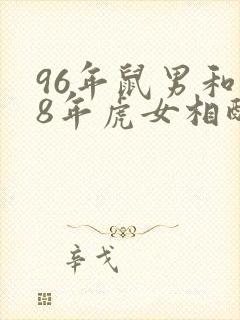 96年鼠男和
8年虎女相配
辛戈